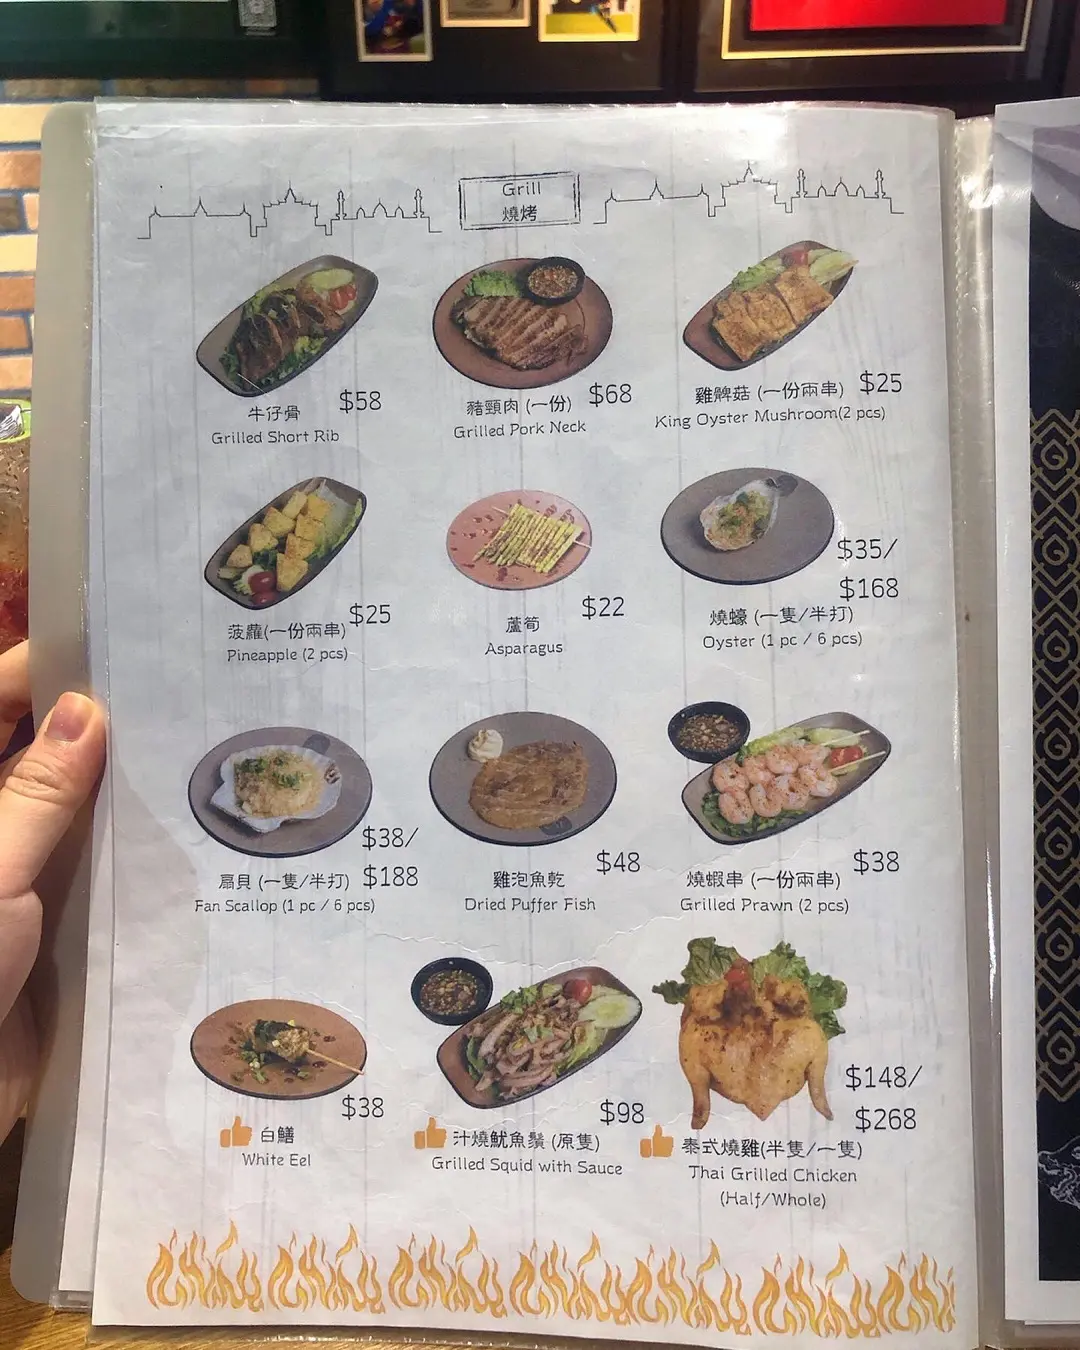 Grill
燒烤
$58
牛仔骨
Grilled Short Rib
$68
豬頸肉 (一份)
Grilled Pork Neck
$25
雞髀菇 (一份兩串)
King Oyster Mushroom(2 pcs)
$25
菠蘿(一份兩串)
Pineapple (2 pcs)
$22
蘆筍
Asparagus
$35/
$168
燒蠔 (一隻/半打)
Oyster (1 pc / 6 pcs)
$38/
$188
扇貝 (一隻/半打)
Fan Scallop (1 pc / 6 pcs)
$48
雞泡魚乾
Dried Puffer Fish
$38
燒蝦串 (一份兩串)
Grilled Prawn (2 pcs)
$38
白鱔
White Eel
$98
汁燒魷魚鬚 (原隻)
Grilled Squid with Sauce
$148/
$268
泰式燒雞(半隻/一隻)
Thai Grilled Chicken
(Half/Whole)